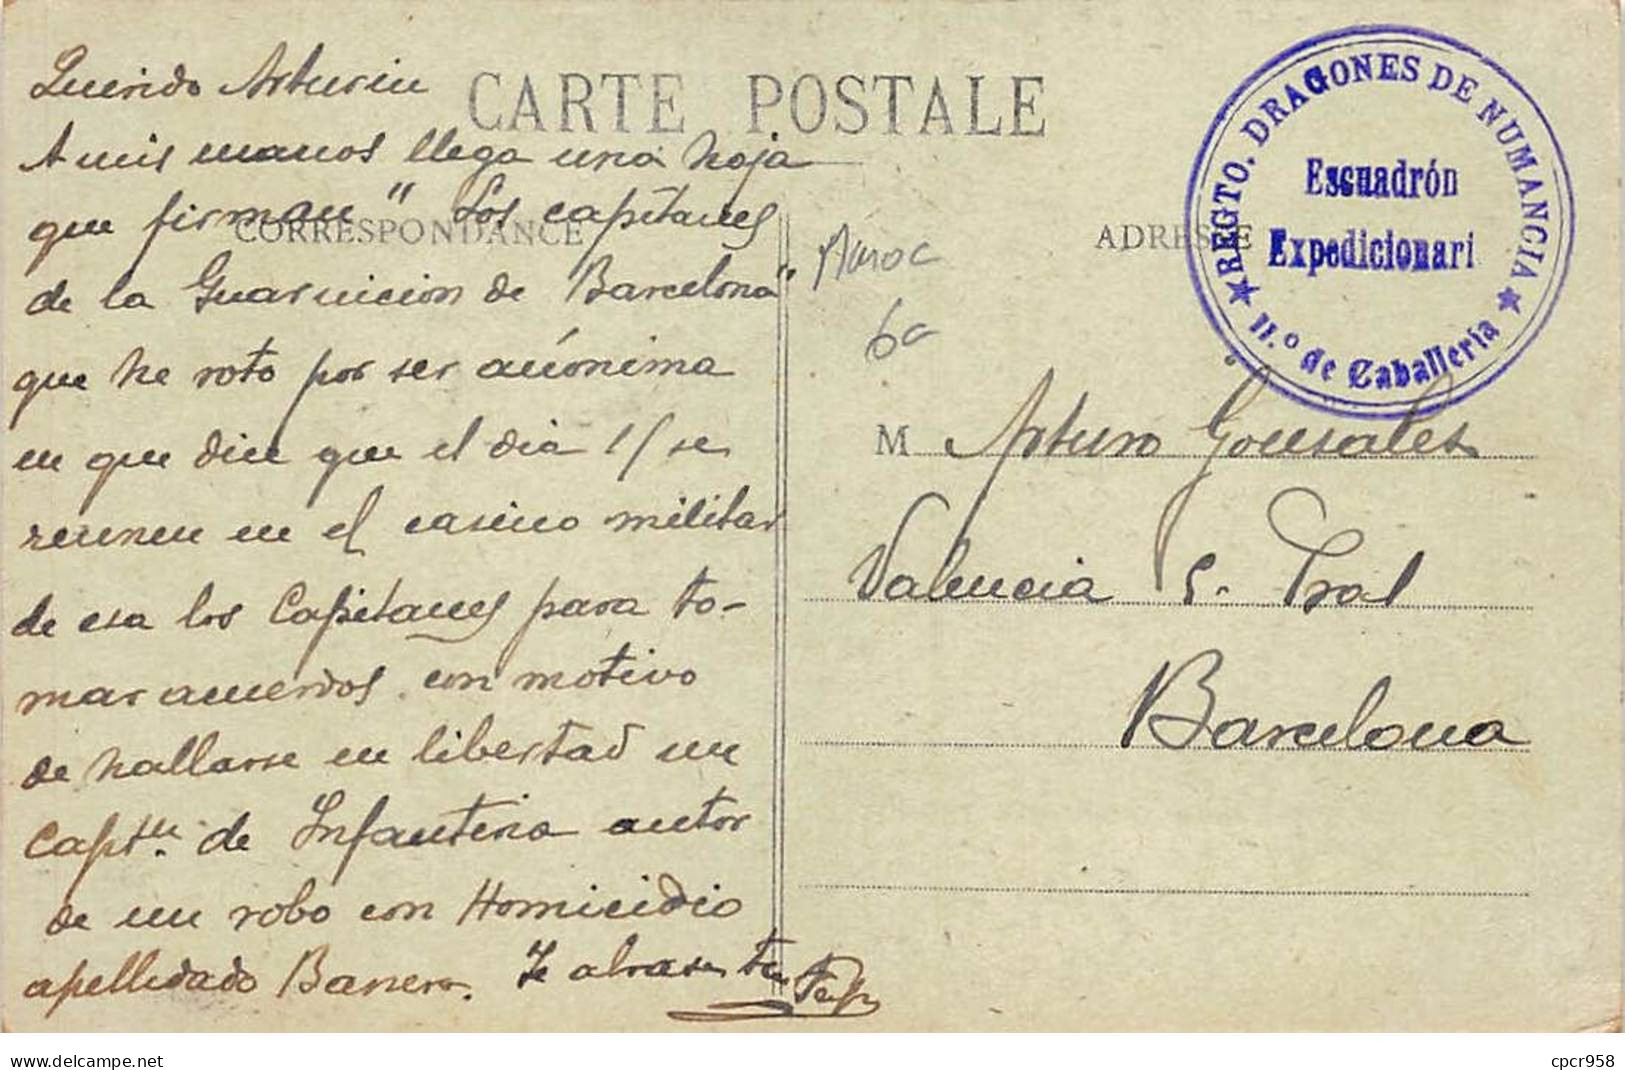 CARTE POSTALE
CORRESPONDANCE
ADRESSE
REGTO. DRAGONES DE NUMANCIA
Escuadrón
Expedicionari
11.º de Caballería
Querido Arturin
A mis manos llega una hoja
que firman "Los capitanes
de la Guarnicion de Barcelona"
que he roto por ser anónima
en que dice que el dia 15 se
reunen en el casino militar
de esa los Capitanes para to-
mar acuerdos con motivo
de hallarse en libertad un
Captn. de Infanteria autor
de un robo con Homicidio
apellidado Banera. Te abrasa tu
Maroc
6c
M Arturo Gonsales
Valencia 5. Pral
Barcelona
cpcr958
www.delcampe.net